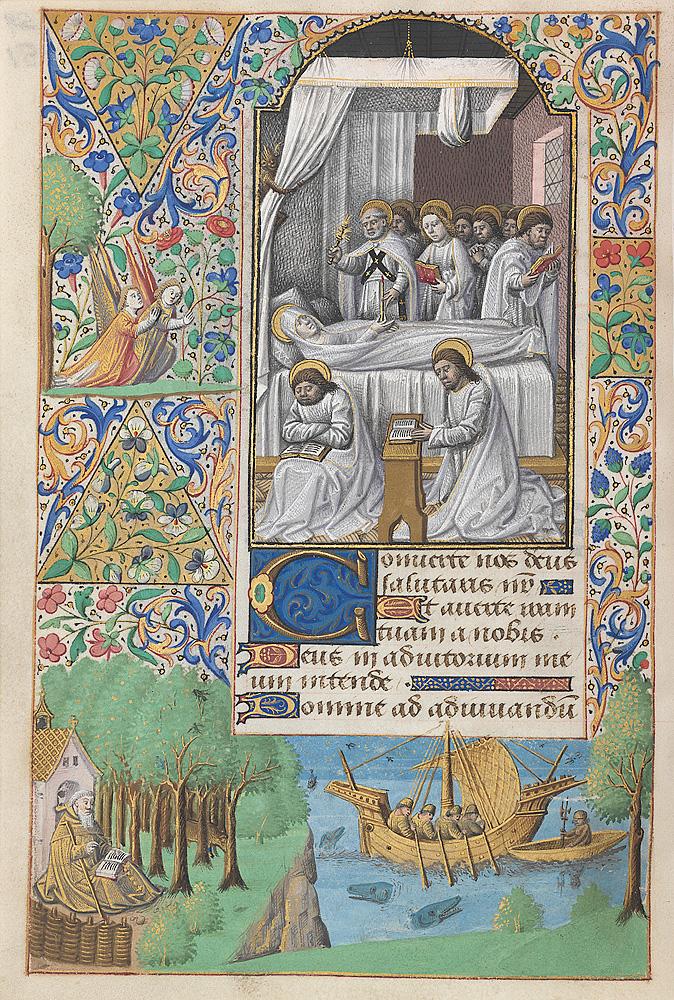 Conuerte nos deus
salutaris nr̄
Et auerte iram
tuam a nobis .
Deus in adiutorium me
um intende .
Domine ad adiuuandū